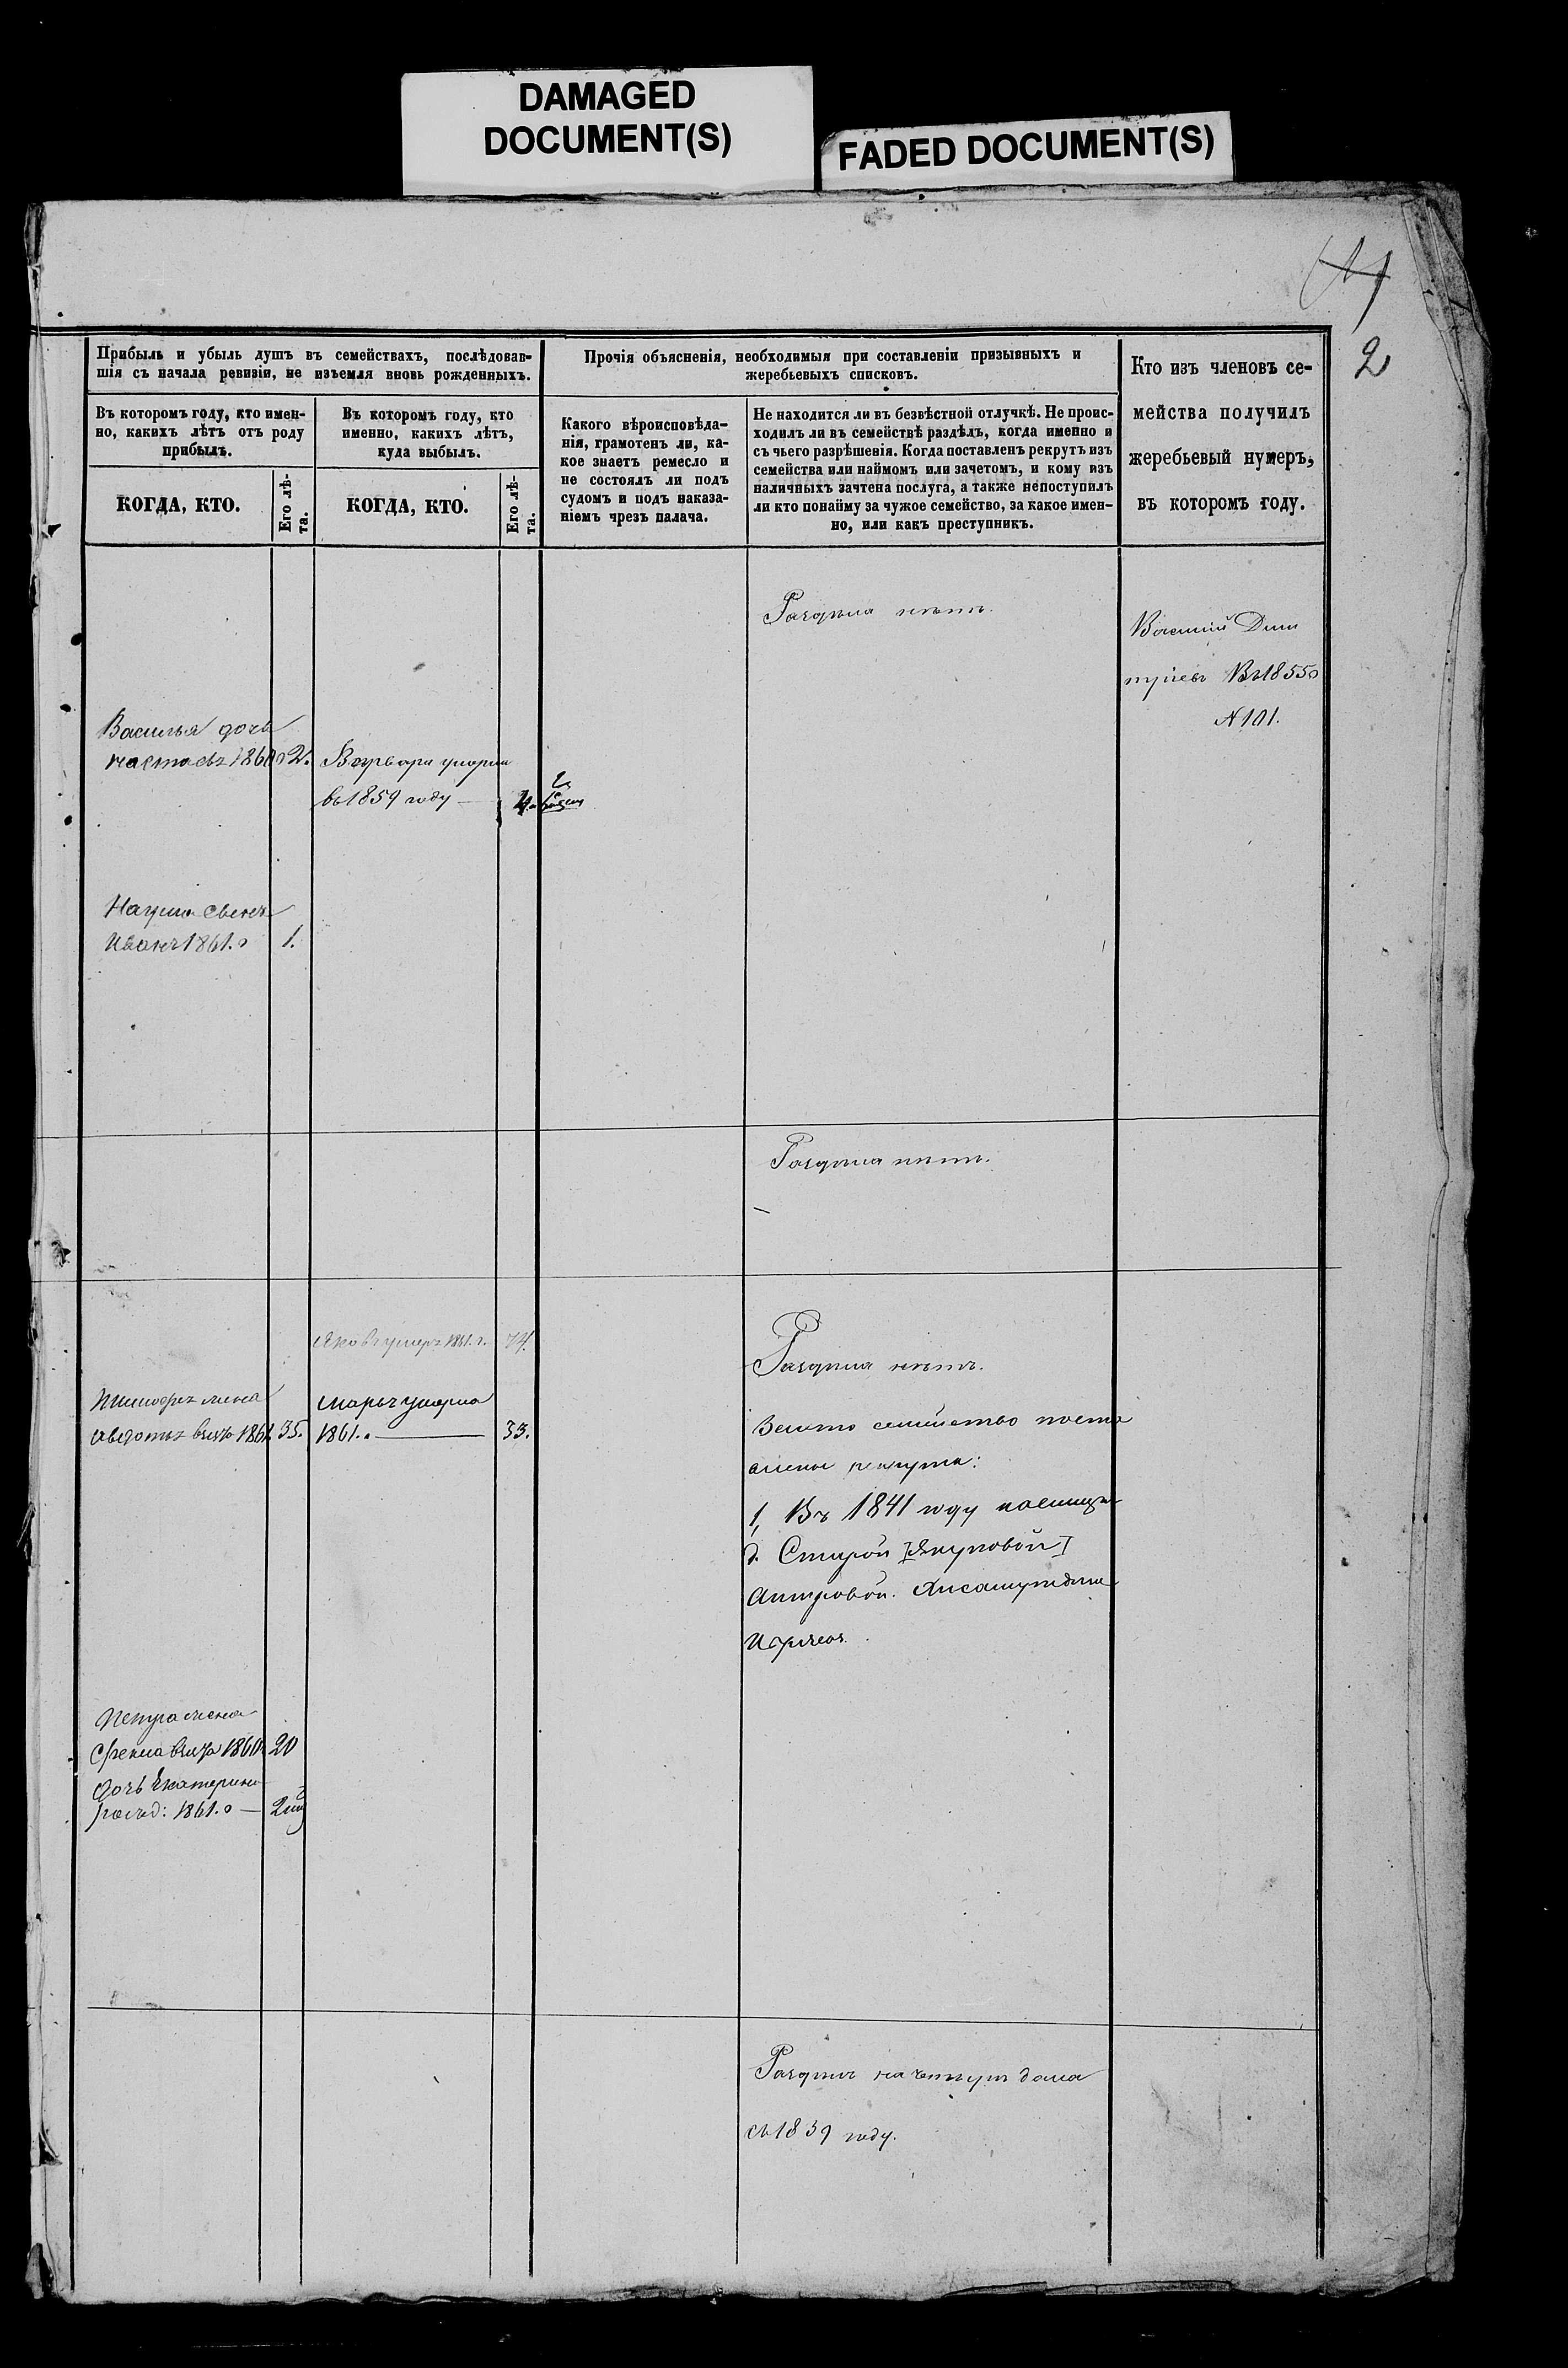 DAMAGED
DOCUMENT(S)
FADED DOCUMENT(S)
2
Прибыль и убыль душъ въ семействахъ, послѣдовав-
шія съ начала ревизіи, не изъемля вновь рожденныхъ.
Въ которомъ году, кто имен-
но, какихъ лѣтъ отъ роду
прибылъ.
КОГДА, КТО.
Его лѣ-
та.
Въ которомъ году, кто
именно, какихъ лѣтъ,
куда выбылъ.
КОГДА, КТО.
Его лѣ-
та.
Прочія объясненія, необходимыя при составленіи призывныхъ и
жеребьевыхъ списковъ.
Какого вѣроисповѣда-
нія, грамотенъ ли, ка-
кое знаетъ ремесло и
не состоялъ ли подъ
судомъ и подъ наказа-
ніемъ чрезъ палача.
Не находится ли въ безвѣстной отлучкѣ. Не проис-
ходилъ ли въ семействѣ раздѣлъ, когда именно и
съ чьего разрѣшенія. Когда поставленъ рекрутъ изъ
семейства или наймомъ или зачетомъ, и кому изъ
наличныхъ зачтена послуга, а также непоступилъ
ли кто понайму за чужое семейство, за какое имен-
но, или какъ преступникъ.
Кто изъ членовъ се-
мейства получилъ
жеребьевый нумеръ,
въ которомъ году.
Раздѣла нѣтъ.
Василій Дми
тріевъ Въ 1855
№ 101.
Василья дочь
1860 2.
Варвара умерла
въ 1859 году — 4.
сынъ
Иванъ 1861. 1.
Раздѣла нѣтъ.
Яковъ умеръ 1861. г. 74.
Раздѣла нѣтъ.
жена
взята 1861. 35.
Марья умерла
1861. — 33.
семейство поста
влены рекрута:
1, Въ 1841 году
д. Старой [Якуповой]
Петра жена
взята 1860 20
дочь Екатерина
рожд: 1861. — 2
Раздѣлъ на четыре дома
съ 1839 году.